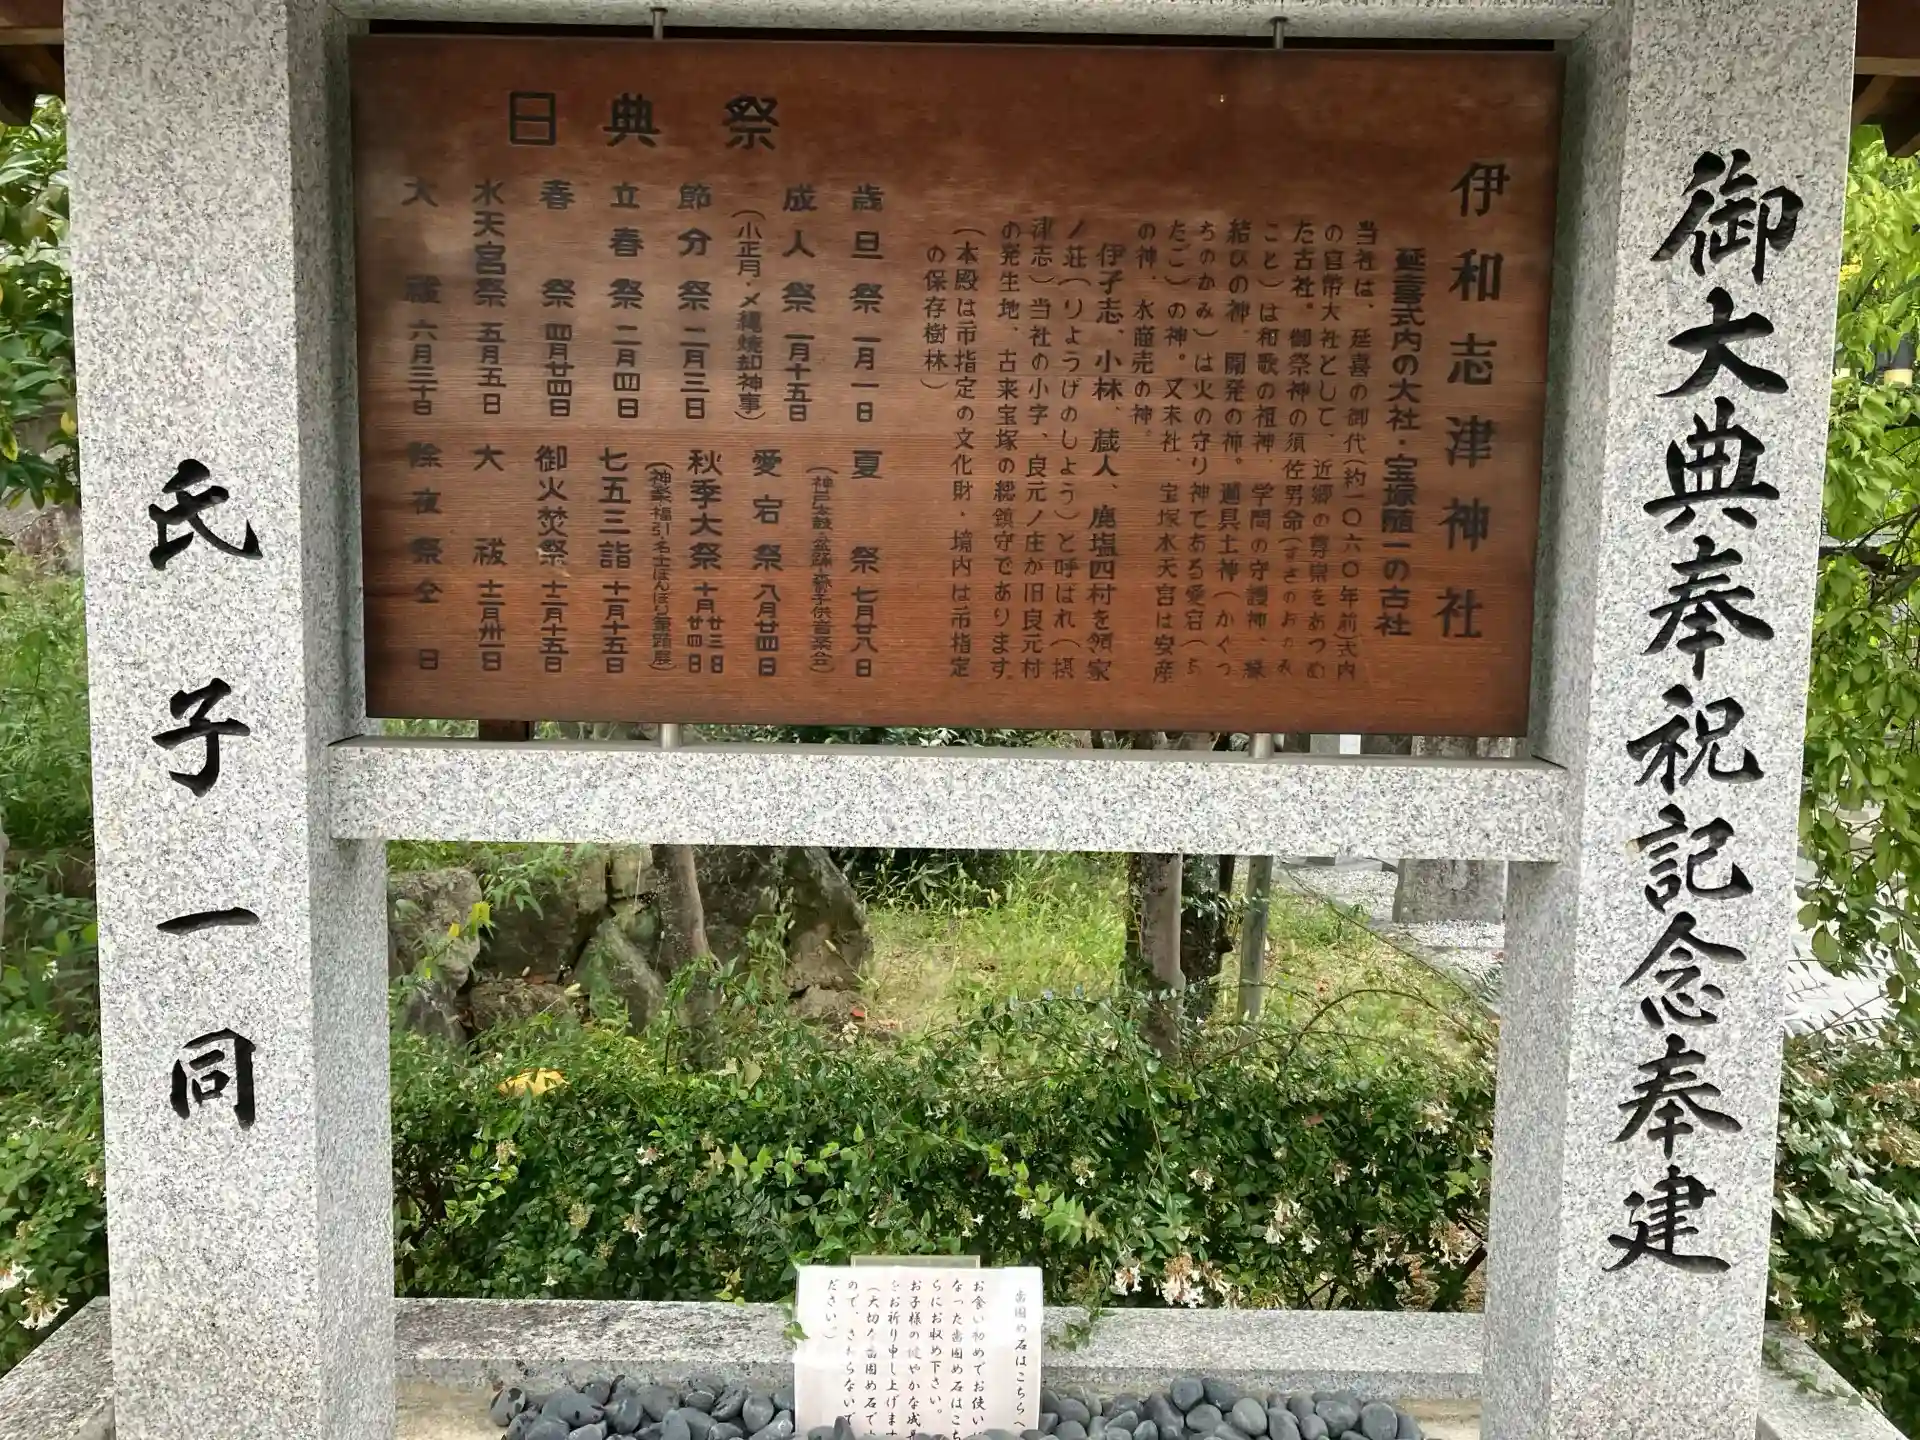 御大典奉祝記念奉建
伊和志津神社
延喜式内の大社・宝塚随一の古社
当社は、延喜の御代(約一〇六〇年前)式内
の官幣大社として、近郷の尊崇をあつめ
た古社。御祭神の須佐男命(すさのおのみ
こと)は和歌の祖神、学問の守護神、縁
結びの神、開発の神。迦具土神(かぐつ
ちのかみ)は火の守り神である愛宕(あ
たご)の神。又末社、宝塚水天宮は安産
の神、水商売の神。
伊孑志、小林、蔵人、鹿塩四村を領家
ノ荘(りょうげのしょう)と呼ばれ(摂
津志)当社の小字、良元ノ庄が旧良元村
の発生地、古来宝塚の総鎮守であります。
(本殿は市指定の文化財・境内は市指定
の保存樹林)
祭典日
歳旦祭 一月一日
成人祭 一月十五日
(小正月・〆縄焼却神事)
節分祭 二月三日
立春祭 二月四日
春祭 四月廿四日
水天宮祭 五月五日
大祓 六月三十日
夏祭 七月廿八日
(神戸太鼓・盆踊・森子供音楽会)
愛宕祭 八月廿四日
秋季大祭 十月廿三日廿四日
(神楽・福引・名士ぼんぼり筆蹟展)
七五三詣 十一月十五日
御火焚祭 十二月十五日
大祓 十二月卅一日
除夜祭 仝日
氏子一同
歯固め石はこちらへ
お食い初めでお使いに
なった歯固め石はこち
らにお収め下さい。
お子様の健やかな成長
をお祈り申し上げます
(大切な歯固め石です
ので、さわらないで
ださい。)